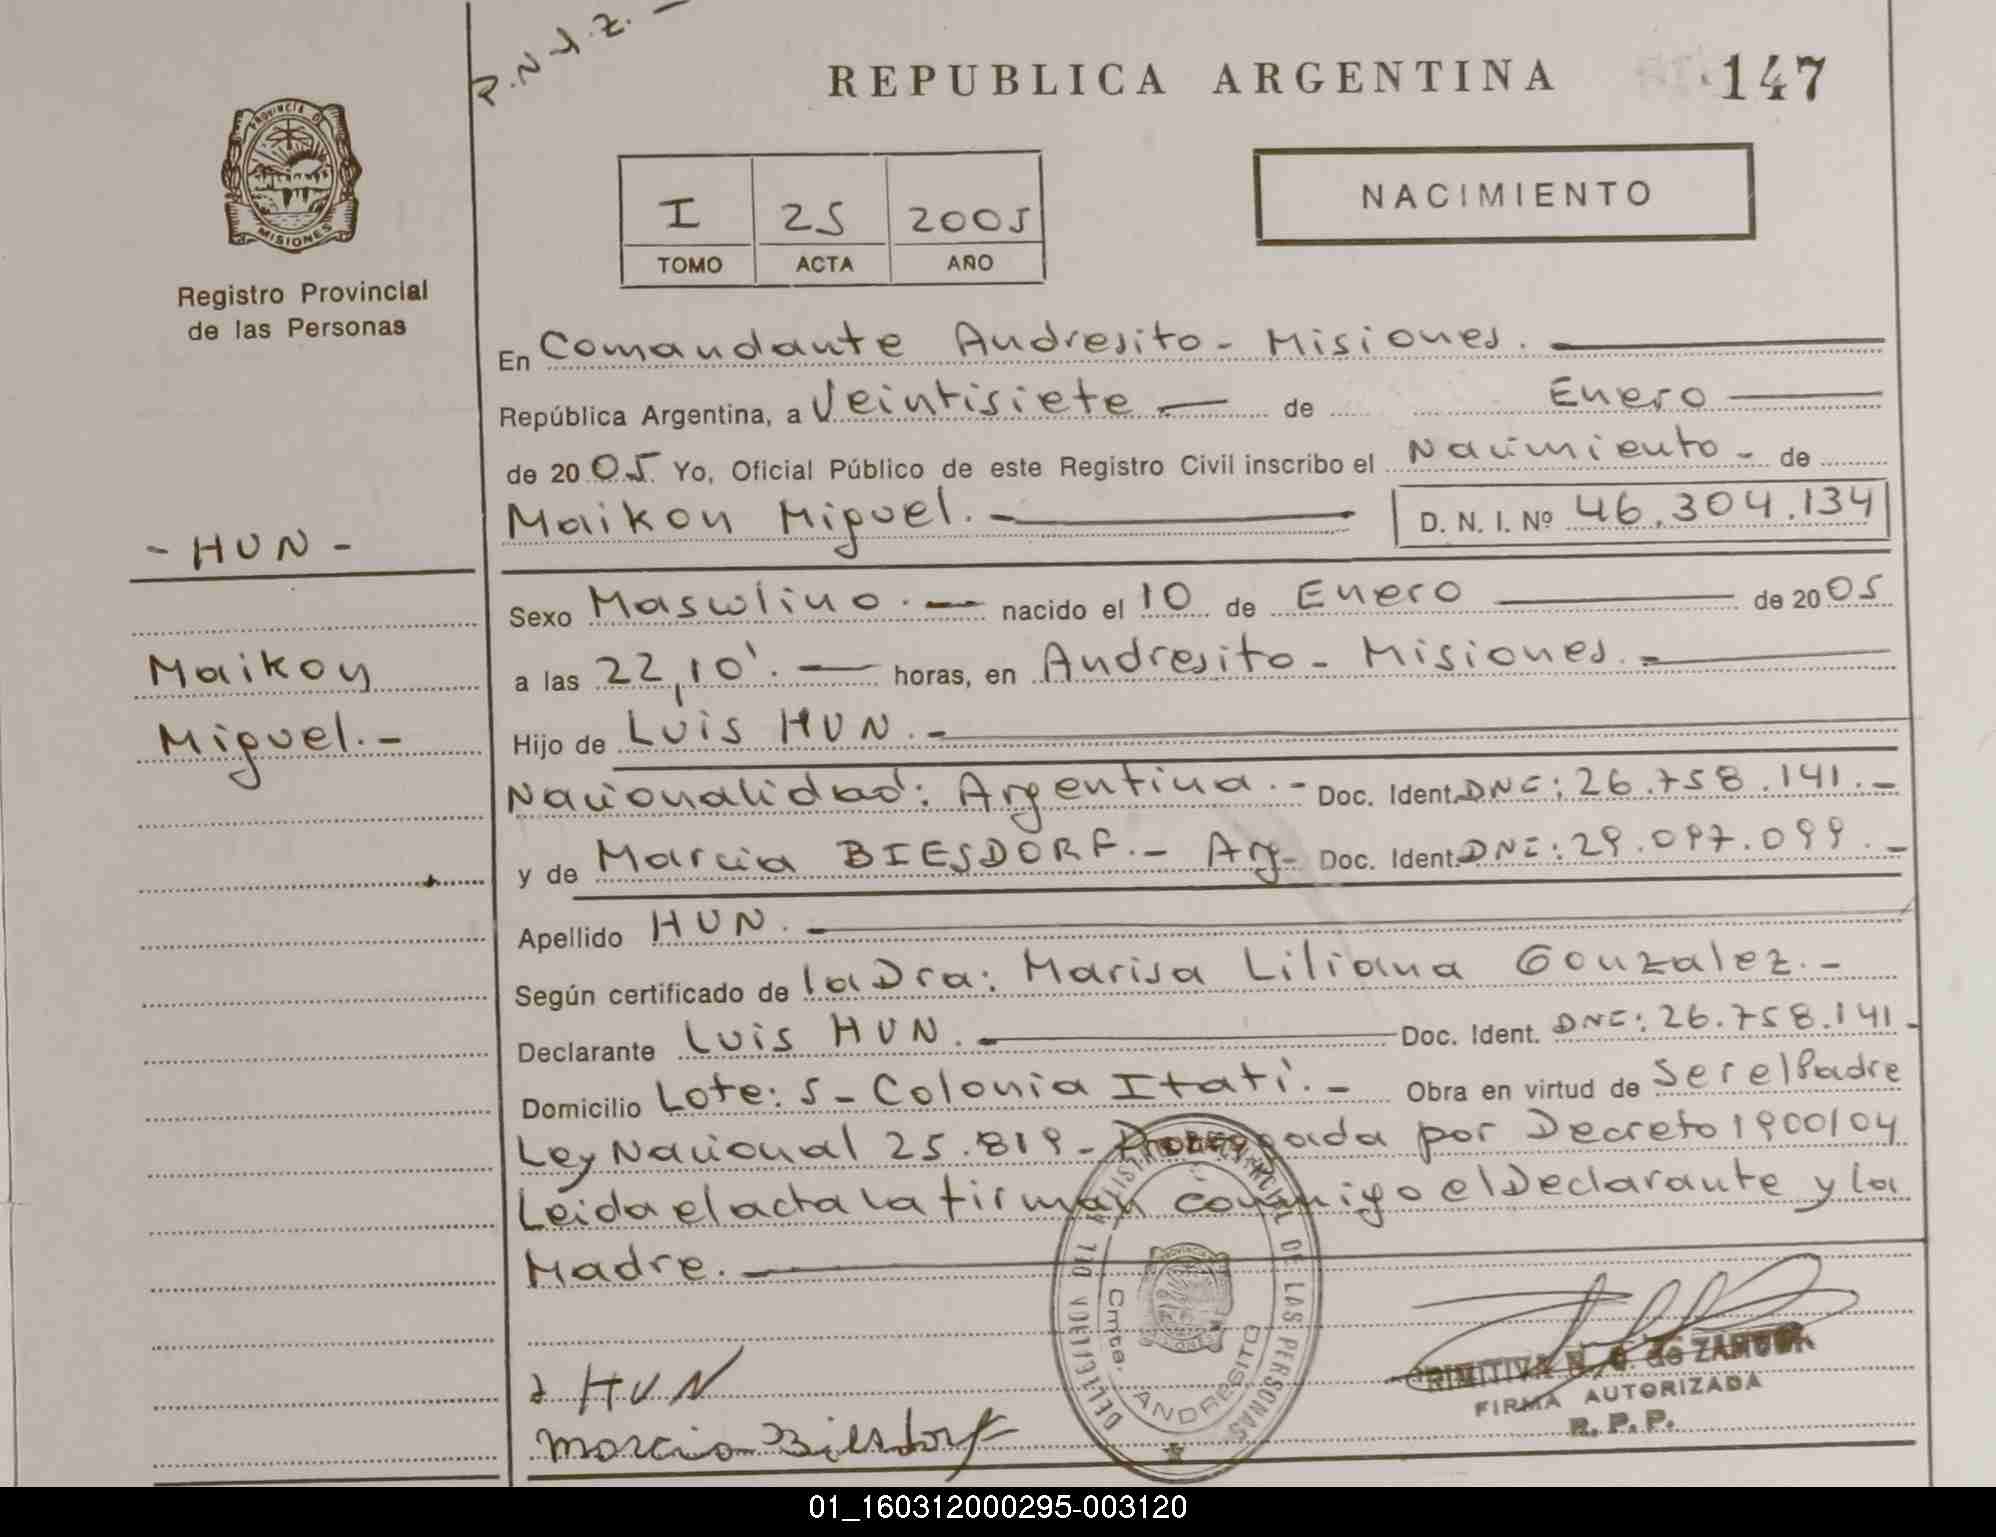 R.N.y.Z. -
REPUBLICA ARGENTINA
147
PROVINCIA DE
MISIONES
Registro Provincial
de las Personas
I 25 2005
TOMO ACTA AÑO
NACIMIENTO
En Comandante Andresito - Misiones.
República Argentina, a Veintisiete de Enero
de 2005 Yo, Oficial Público de este Registro Civil inscribo el Nacimiento - de
Maikon Miguel. - D. N. I. Nº 46.304.134
- HUN -
Maikon
Miguel. -
Sexo Masculino. - nacido el 10 de Enero de 2005
a las 22,10'. horas, en Andresito - Misiones. -
Hijo de Luis HUN. -
Nacionalidad: Argentina. - Doc. Ident. DNI: 26.758.141. -
y de Marcia BIESDORF. - Arg- Doc. Ident. DNI: 29.097.099. -
Apellido HUN. -
Según certificado de la Dra: Marisa Liliana Gonzalez. -
Declarante Luis HUN. - Doc. Ident. DNI: 26.758.141 -
Domicilio Lote: 5 - Colonia Itatí. - Obra en virtud de Ser el Padre
Ley Nacional 25.819 - Prorrogada por Decreto 1900/04
Leida el acta la firman conmigo el Declarante y la
Madre.
PROVINCIAL DE LAS PERSONAS
Cmte. ANDRESITO
HUN
Marcia Biesdorf
FIRMA AUTORIZADA
R. P. P.
01_160312000295-003120